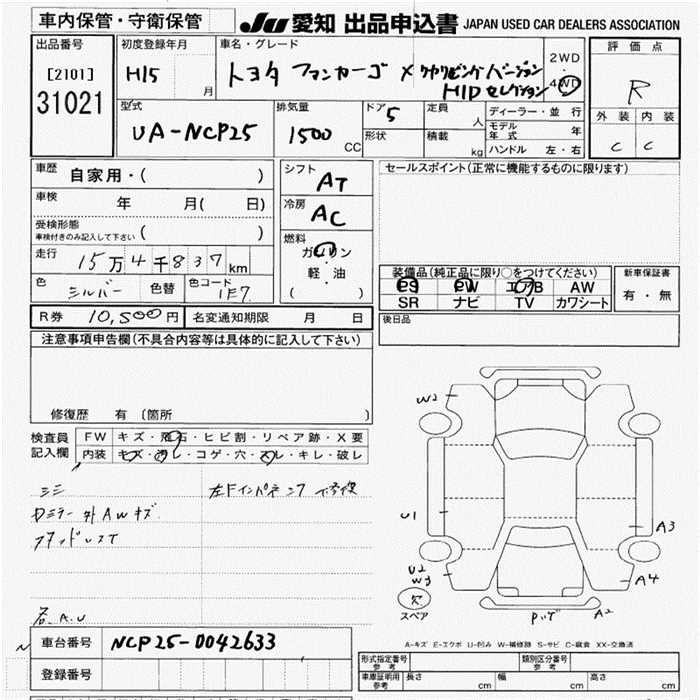 車内保管・守衛保管
JU 愛知 出品申込書 JAPAN USED CAR DEALERS ASSOCIATION
出品番号
[2101]
31021
初度登録年月
H15 月
車名・グレード
トヨタ ファンカーゴ X
HID セレクション
2WD
4WD
評価点
R
外装 内装
C C
型式
UA-NCP25
排気量
1500 CC
ドア 5
形状
定員 人
積載 kg
ディーラー・並行
モデル年式 年
ハンドル 左・右
車歴
自家用・( )
車検 年 月( 日)
受検形態
車検付きのみ記入して下さい ( )
走行 15万4千837km
色 シルバー 色替 色コード 1E7
シフト
AT
冷房
AC
燃料
ガソリン
軽・油
( )
セールスポイント(正常に機能するものに限ります)
装備品(純正品に限り○をつけてください)
PS PW エアB AW
SR ナビ TV カワシート
新車保証書
有・無
R券 10,500円 名変通知期限 月 日
後日品
注意事項申告欄(不具合内容等は具体的に記入して下さい)
修復歴 有 〔箇所 〕
検査員
記入欄
FW キズ・飛石・ヒビ割・リペア跡・X要
内装 キズ・汚レ・コゲ・穴・スレ・キレ・破レ
W2
U1
A3
U2
W3
A4
欠
スペア
A2
A-キズ E-エクボ U-凹み W-補修跡 S-サビ C-腐食 XX-交換済
車台番号 NCP25-0042633
登録番号
形式指定番号
参考
類別区分番号
参考
車庫証明用
参考
長さ cm 幅 cm 高さ cm